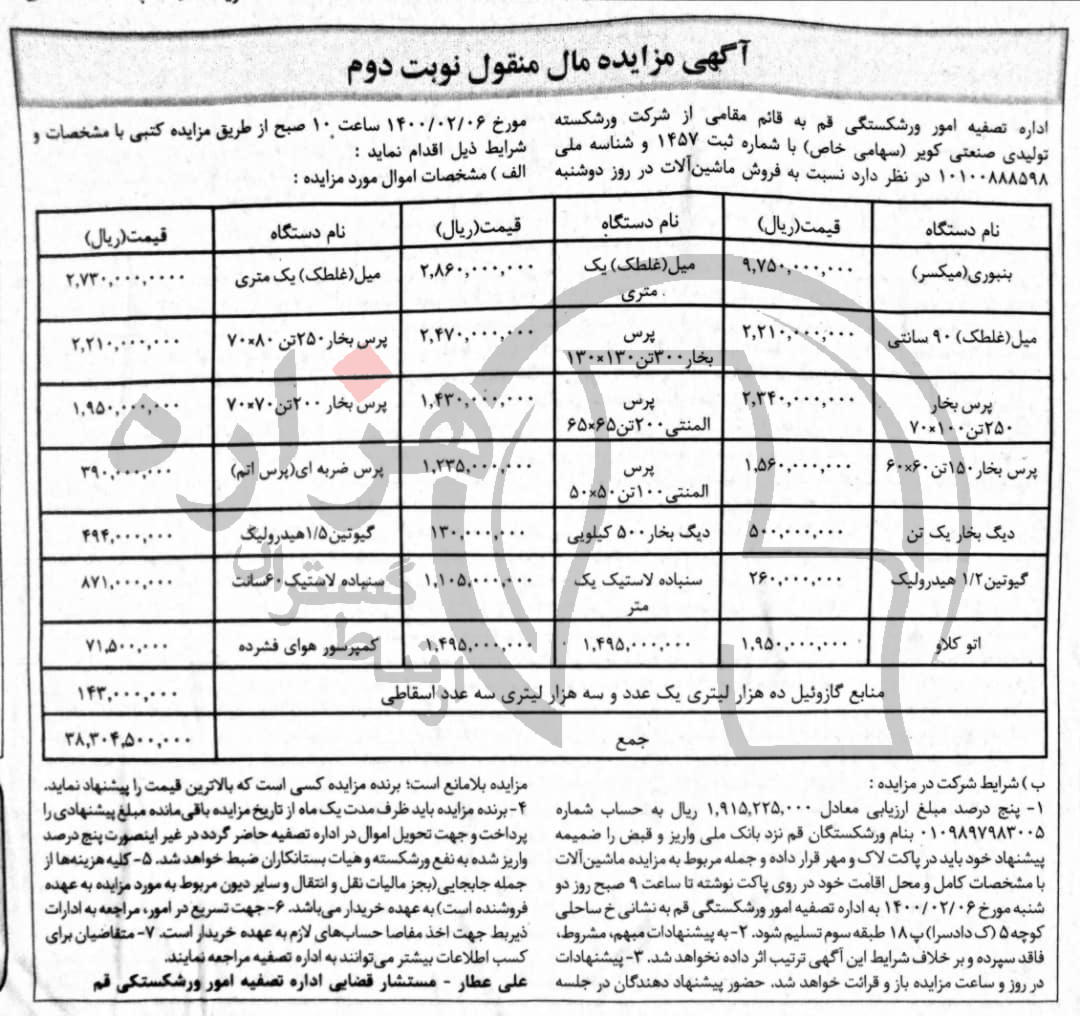 آگهی مزایده مال منقول نوبت دوم
اداره تصفیه امور ورشکستگی قم به قائم مقامی از شرکت ورشکسته
تولیدی صنعتی کویر (سهامی خاص) با شماره ثبت ۱۴۵۷ و شناسه ملی
۱۰۱۰۰۸۸۸۵۹۸ در نظر دارد نسبت به فروش ماشین‌آلات در روز دوشنبه
مورخ ۱۴۰۰/۰۲/۰۶ ساعت ۱۰ صبح از طریق مزایده کتبی با مشخصات و
شرایط ذیل اقدام نماید :
الف ) مشخصات اموال مورد مزایده :
نام دستگاه قیمت(ریال) نام دستگاه قیمت(ریال) نام دستگاه قیمت(ریال)
بنبوری(میکسر) ۹,۷۵۰,۰۰۰,۰۰۰ میل(غلطک) یک متری ۲,۸۶۰,۰۰۰,۰۰۰ میل(غلطک) یک متری ۲,۷۳۰,۰۰۰,۰۰۰۰
میل(غلطک) ۹۰ سانتی ۲,۲۱۰,۰۰۰,۰۰۰ پرس بخار۳۰۰تن۱۳۰×۱۳۰ ۲,۴۷۰,۰۰۰,۰۰۰ پرس بخار۲۵۰تن ۸۰×۷۰ ۲,۲۱۰,۰۰۰,۰۰۰
پرس بخار ۲۵۰تن۱۰۰×۷۰ ۲,۳۴۰,۰۰۰,۰۰۰ پرس المنتی۲۰۰تن۶۵×۶۵ ۱,۴۳۰,۰۰۰,۰۰۰ پرس بخار ۲۰۰تن۷۰×۷۰ ۱,۹۵۰,۰۰۰,۰۰۰
پرس بخار۱۵۰تن۶۰×۶۰ ۱,۵۶۰,۰۰۰,۰۰۰ پرس المنتی۱۰۰تن۵۰×۵۰ ۱,۲۳۵,۰۰۰,۰۰۰ پرس ضربه ای(پرس اتم) ۳۹۰,۰۰۰,۰۰۰
دیگ بخار یک تن ۵۰۰,۰۰۰,۰۰۰ دیگ بخار۵۰۰ کیلویی ۱۳۰,۰۰۰,۰۰۰ گیوتین۱/۵هیدرولیگ ۴۹۴,۰۰۰,۰۰۰
گیوتین۱/۲ هیدرولیک ۲۶۰,۰۰۰,۰۰۰ سنباده لاستیک یک متر ۱,۱۰۵,۰۰۰,۰۰۰ سنباده لاستیک۶۰سانت ۸۷۱,۰۰۰,۰۰۰
اتو کلاو ۱,۹۵۰,۰۰۰,۰۰۰ ۱,۴۹۵,۰۰۰,۰۰۰ ۱,۴۹۵,۰۰۰,۰۰۰ کمپرسور هوای فشرده ۷۱,۵۰۰,۰۰۰
منابع گازوئیل ده هزار لیتری یک عدد و سه هزار لیتری سه عدد اسقاطی ۱۴۳,۰۰۰,۰۰۰
جمع ۳۸,۳۰۴,۵۰۰,۰۰۰
ب ) شرایط شرکت در مزایده :
۱- پنج درصد مبلغ ارزیابی معادل ۱,۹۱۵,۲۲۵,۰۰۰ ریال به حساب شماره
۰۱۰۹۸۹۷۹۸۳۰۰۵ بنام ورشکستگان قم نزد بانک ملی واریز و قبض را ضمیمه
پیشنهاد خود باید در پاکت لاک و مهر قرار داده و جمله مربوط به مزایده ماشین‌آلات
با مشخصات کامل و محل اقامت خود در روی پاکت نوشته تا ساعت ۹ صبح روز دو
شنبه مورخ ۱۴۰۰/۰۲/۰۶ به اداره تصفیه امور ورشکستگی قم به نشانی خ ساحلی
کوچه۵ (ک دادسرا) پ۱۸ طبقه سوم تسلیم شود. ۲- به پیشنهادات مبهم، مشروط،
فاقد سپرده و بر خلاف شرایط این آگهی ترتیب اثر داده نخواهد شد. ۳- پیشنهادات
در روز و ساعت مزایده باز و قرائت خواهد شد. حضور پیشنهاد دهندگان در جلسه
مزایده بلامانع است؛ برنده مزایده کسی است که بالاترین قیمت را پیشنهاد نماید.
۴- برنده مزایده باید ظرف مدت یک ماه از تاریخ مزایده باقی‌مانده مبلغ پیشنهادی را
پرداخت و جهت تحویل اموال در اداره تصفیه حاضر گردد در غیر اینصورت پنج درصد
واریز شده به نفع ورشکسته و هیات بستانکاران ضبط خواهد شد. ۵- کلیه هزینه‌ها از
جمله جابجایی(بجز مالیات نقل و انتقال و سایر دیون مربوط به مورد مزایده به عهده
فروشنده است) به عهده خریدار می‌باشد. ۶- جهت تسریع در امور، مراجعه به ادارات
ذیربط جهت اخذ مفاصا حساب‌های لازم به عهده خریدار است. ۷- متقاضیان برای
کسب اطلاعات بیشتر می‌توانند به اداره تصفیه مراجعه نمایند.
علی عطار - مستشار قضایی اداره تصفیه امور ورشکستکی قم
هزاره
گسترش
ارتباط